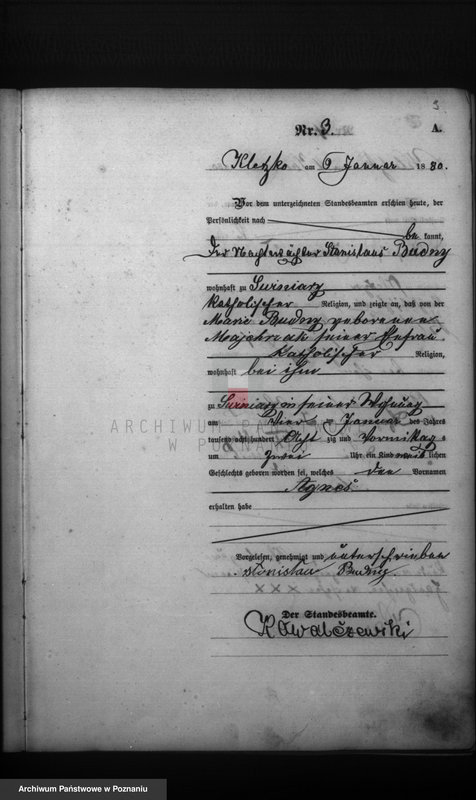 3
Nr. 3. A.
Kletzko am 6 Januar 1880.
Vor dem unterzeichneten Standesbeamten erschien heute, der
Persönlichkeit nach
be kannt,
Der Nachtwächter Stanislaus Budny
wohnhaft zu Swiniary
katholischer Religion, und zeigte an, daß von der
Marie Budny geborenen
Majchrzak seiner Ehefrau
katholischer Religion,
wohnhaft bei ihm
zu Swiniary in seiner Wohnung
am vier Januar des Jahres
tausend acht hundert Acht zig und Vormittags
um zwei Uhr ein Kind weiblichen
Geschlechts geboren worden sei, welches den Vornamen
Agnes
erhalten habe
Vorgelesen, genehmigt und unterschrieben
Stanislau Budny
Der Standesbeamte.
Kowalczewski
ARCHIWUM PAŃSTWOWE
W POZNANIU
Archiwum Państwowe w Poznaniu